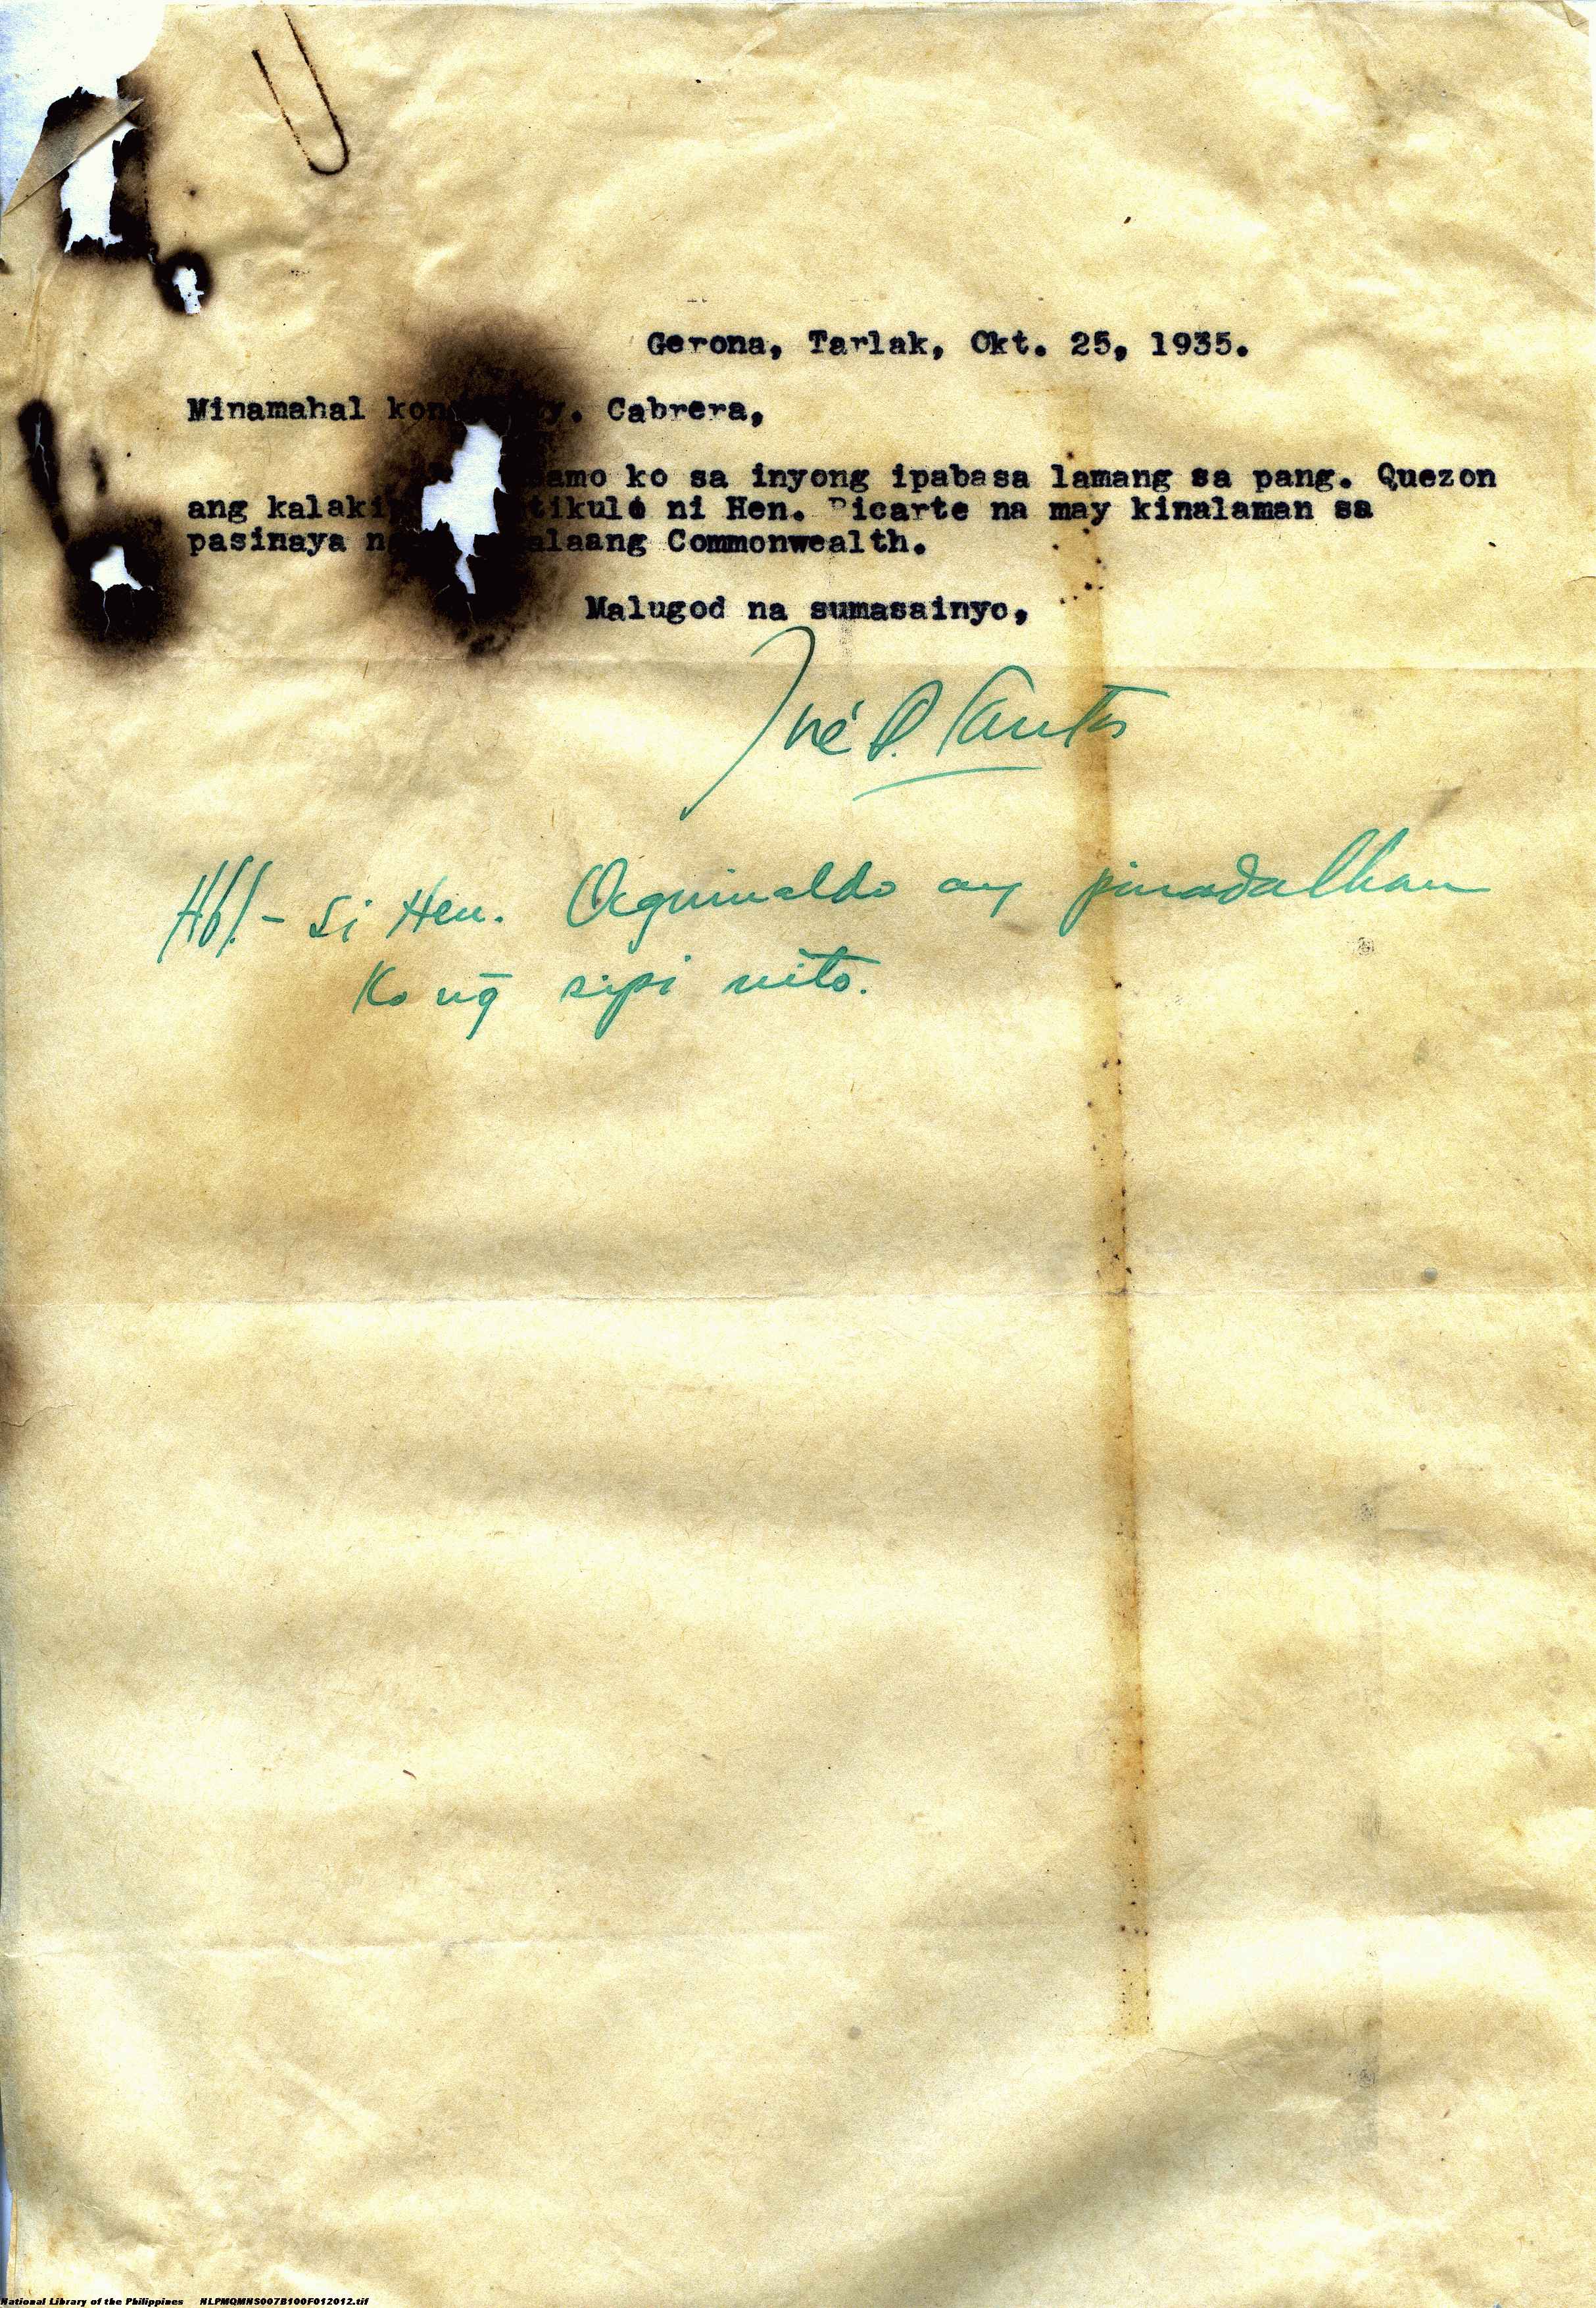 Gerona, Tarlak, Okt. 25, 1935.
Minamahal kong y. Cabrera,
amo ko sa inyong ipabasa lamang sa pang. Quezon
ang kalaki tikulo ni Hen. Ricarte na may kinalaman sa
pasinaya n alaang Commonwealth.
Malugod na sumasainyo,
José P. Santos
Hb!- Si Hen. Aguinaldo ay pinadalhan
ko ng̃ sipi nito.
National Library of the Philippines NLPMQMNS007B100F012012.tif